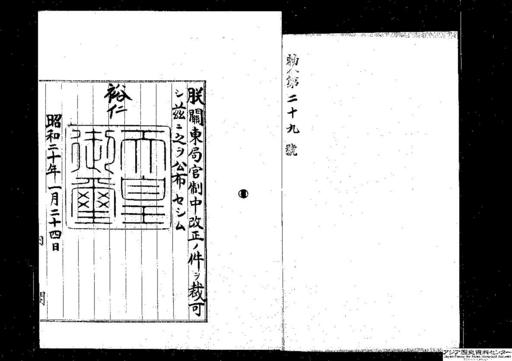 勅令第二十九號
朕關東局官制中改正ノ件ヲ裁可
シ茲ニ之ヲ公布セシム
裕仁
天皇御璽
昭和二十年一月二十四日
内閣
アジア歴史資料センター